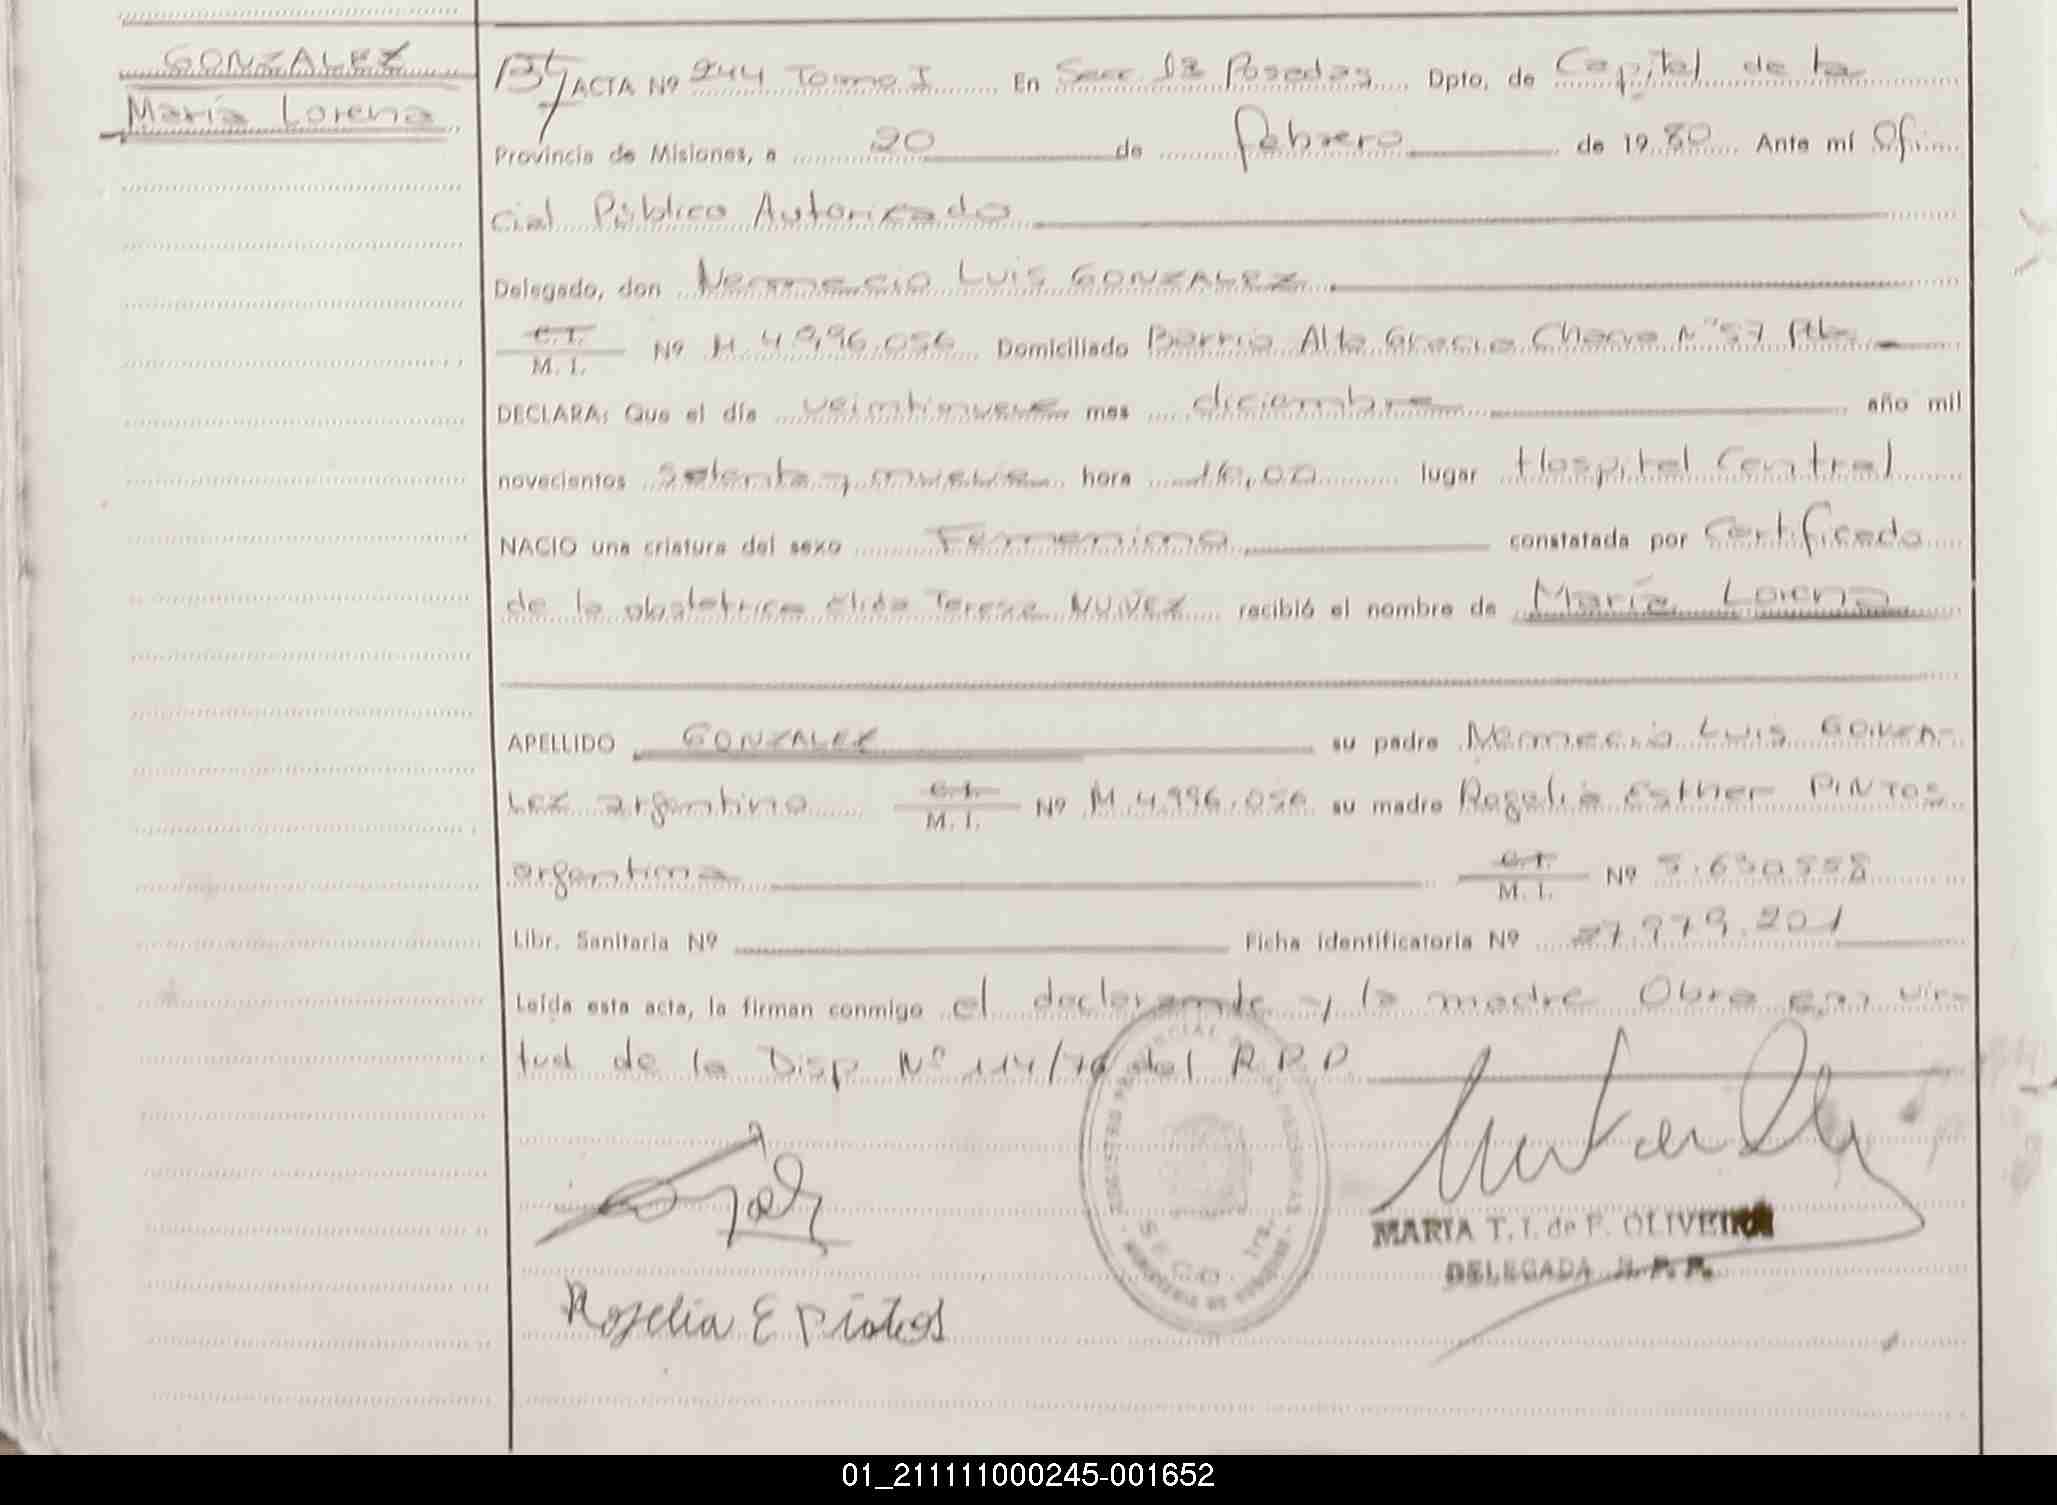 GONZALEZ
María Lorena
ACTA Nº 244 Tomo I En Secc 1ª Posadas Dpto. de Capital de la
Provincia de Misiones, a 20 de febrero de 1980 Ante mí Ofi
cial Público Autorizado
Delegado, don Nemecio Luis GONZALEZ
C.I.
M. I. Nº M 4.996.056 Domiciliado Barrio Alta Gracia Chacra Nº 57
DECLARA: Que el día veintinueve mes diciembre año mil
novecientos setenta y nueve hora 16,00 lugar Hospital Central
NACIO una criatura del sexo Femenino constatada por Certificado
de la obstetrica Elida Teresa NUÑEZ recibió el nombre de María Lorena
APELLIDO GONZALEZ su padre Nemecio Luis GONZA-
LEZ argentino C.I. Nº M 4.996.056 su madre Rogelia Esther PINTOS
M. I.
argentina C.I. Nº 5.630.558
M. I.
Libr. Sanitaria Nº Ficha identificatoria Nº 27.979.201
Leída esta acta, la firman conmigo el declarante y la madre Obra en vir-
tud de la Disp Nº 114/70 del R.P.P.
Rogelia E Pintos
MARIA T. I. de P. OLIVEIRA
DELEGADA R. P. P.
01_211111000245-001652